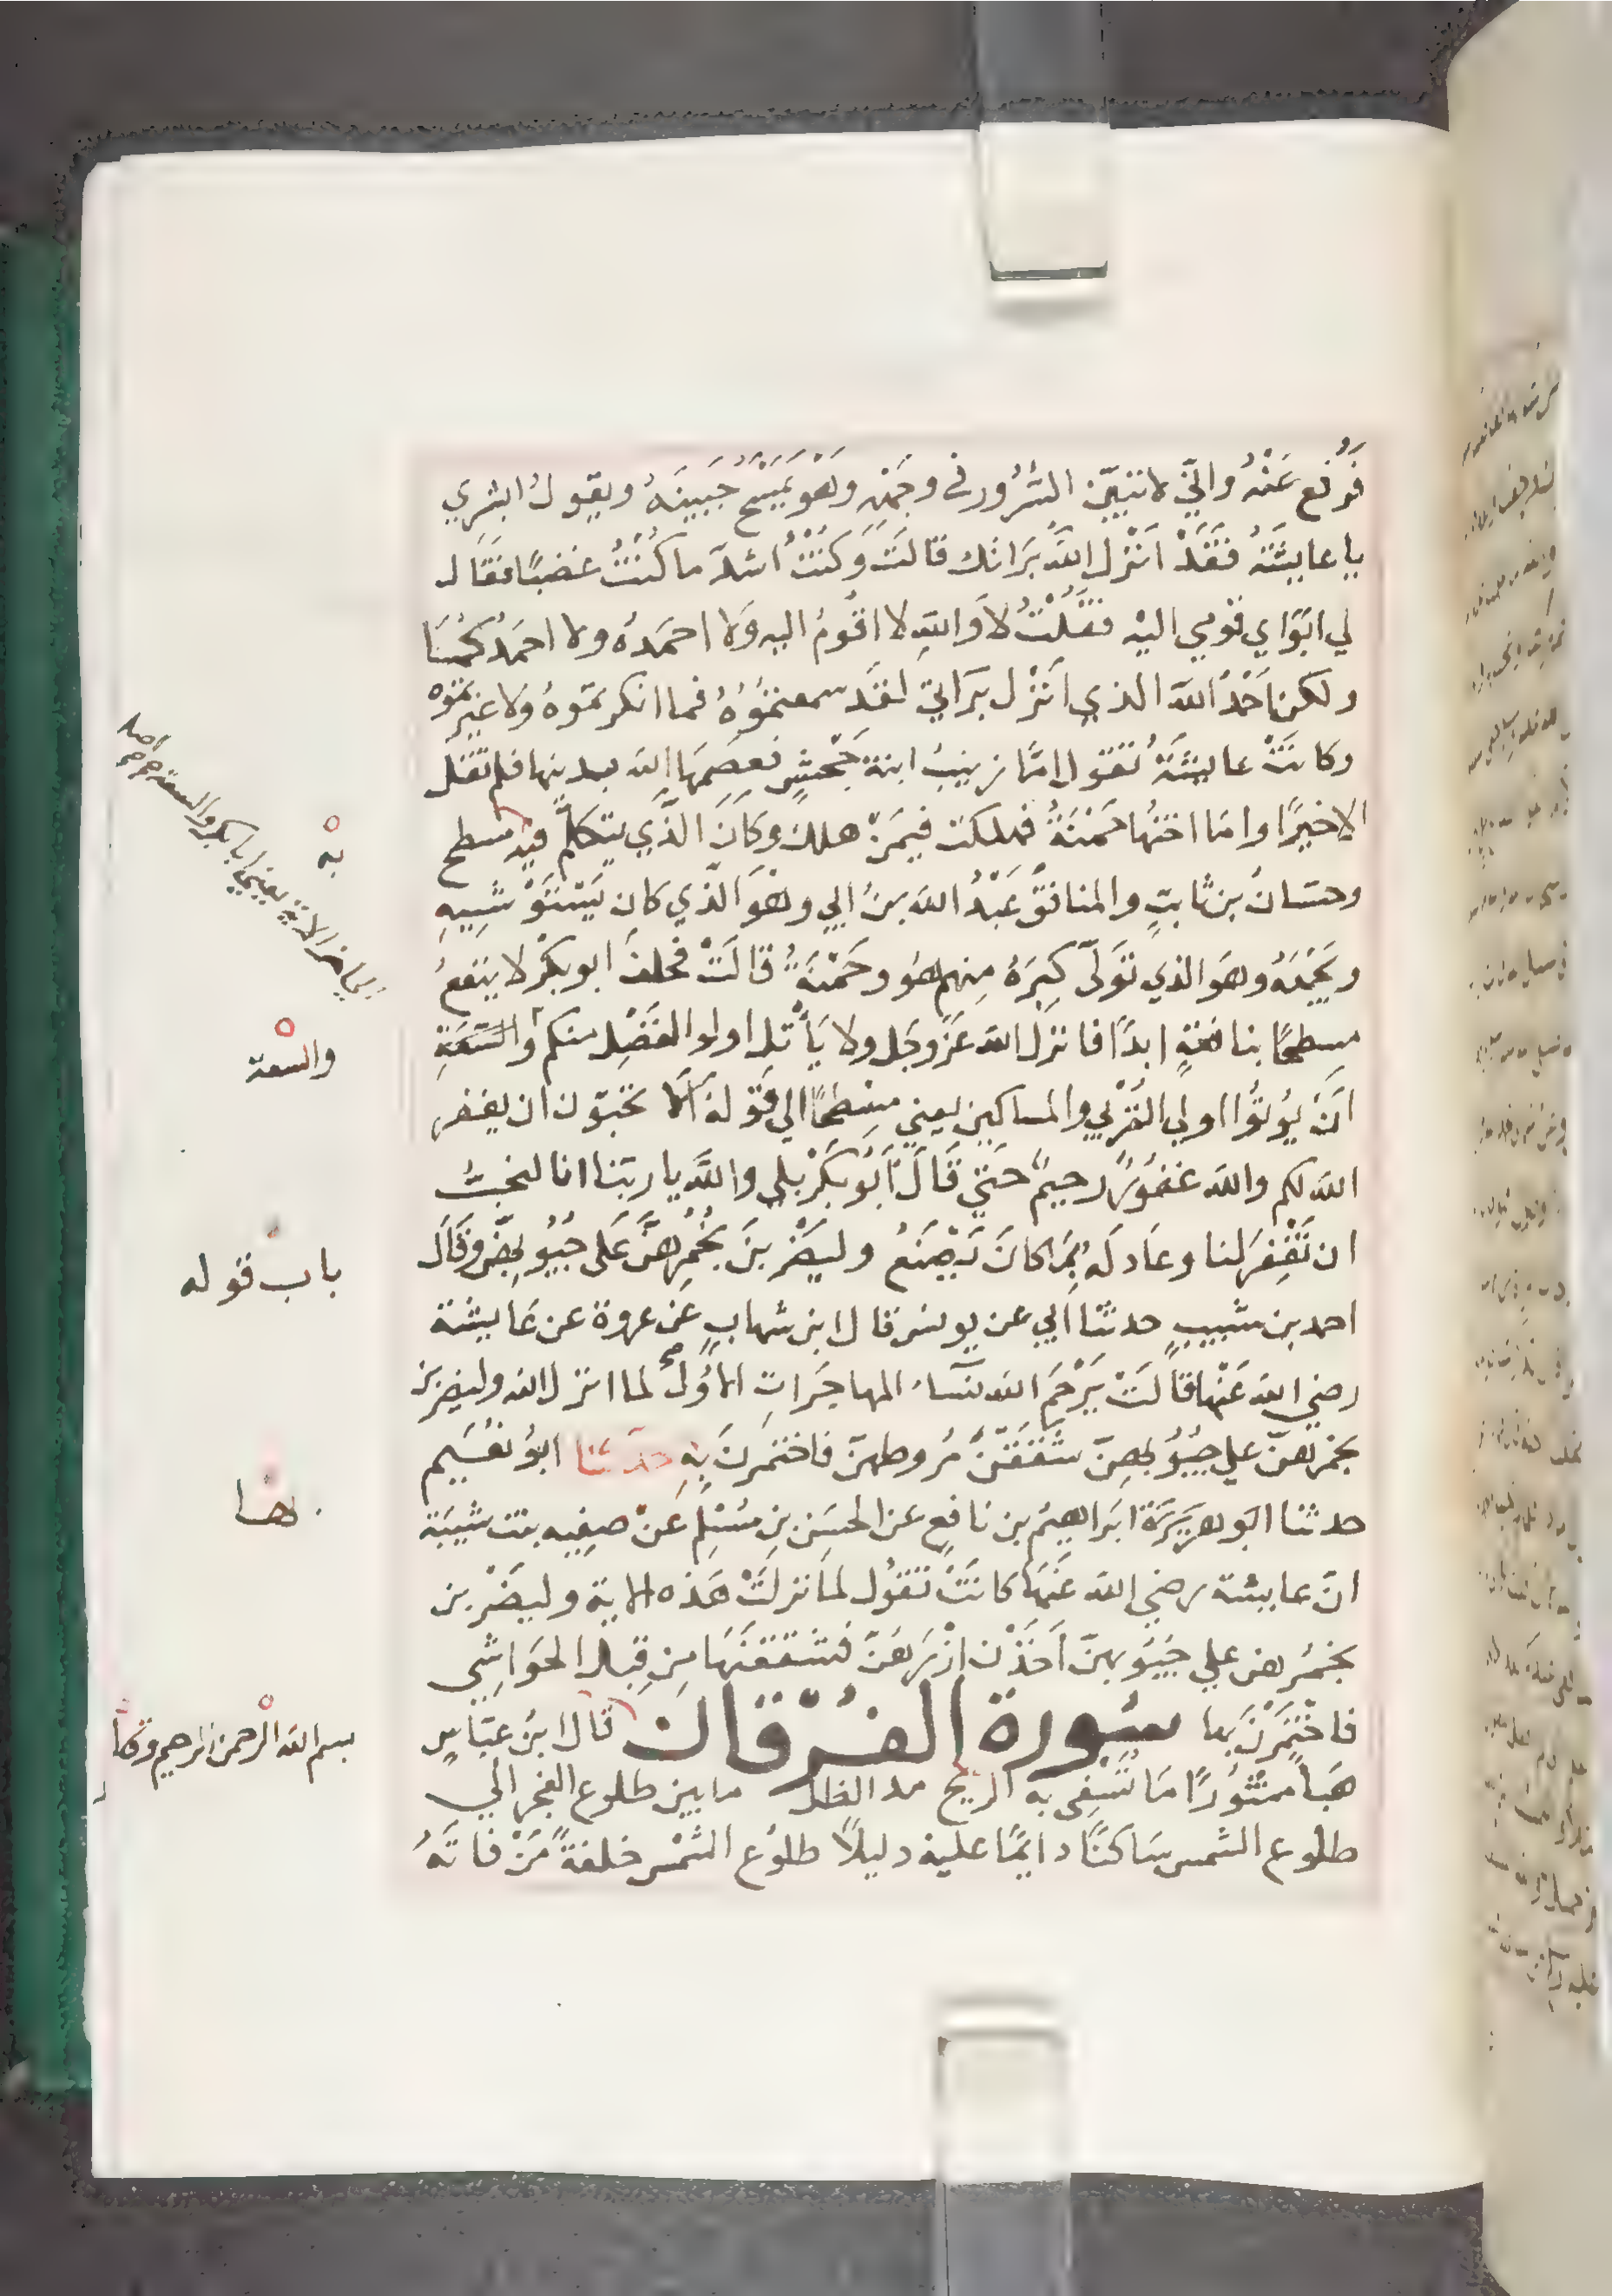 فَرُفع عَنْهُ وانّي لاتبيّن السُّرُور في وجهِه وهَوْ يَمْسَحُ جَبِينَهُ ويقول ابشري
يا عايشَةُ فقَدْ انْزل اللهُ بَرَاتك قالَتْ وكُنْتُ اشدّ ما كُنْتُ غضبًا فقال
لي ابَوَاي قُومي اليْه فقُلْتُ لا وَاللهِ لا اقُومُ اليه وَلا احمَدهُ ولا احمَدُكُمَا
ولكن احْمَدُ اللهَ الذي انْزل بَرَاتي لقَد سمعتمُوُهُ فما انكرتمُوهُ وَلا غيرتمُوه
وكانَتْ عايشَةُ تقُول امّا زينبُ ابنة جَحْشٍ فعصَمَهَا الله بدينها فلم تقل
الا خيرًا وامّا اختُها حَمْنَةُ فهلكت فيمَنْ هلك وكَانَ الذَّي يتكلّم فيه مسطح
وحسّانُ بن ثابتٍ والمنافقُ عَبْدُ الله بن ابي وهْوَ الذَّي كان يَسْتَوْشِيهِ
ويَجْمَعُهُ وهوَ الذي تَوَلّى كِبرَهُ مِنهم هُو وحَمْنَةُ قالَتْ فحلفَ ابو بكْر لا ينفعُ
مِسطحًا بنافعَةٍ ابدًا فانزل الله عَزّ وجَل ولا يَأْتل اولوا الفَضْلِ منكم وَالسَّعَةِ
انْ يُوتُوا اولي القُرْبي والمساكين يعني مِسْطحًا الي قَوله الا تحبّون ان يغفر
الله لكم والله غفُورٌ رحيمٌ حَتيّ قَالَ ابُو بَكْر بَلي واللَّه يا ربّنا انا لنحبُّ
ان تَغْفِرَ لنا وعَاد لَهُ بِمَا كانَ يَصْنَعُ وليَضْربنَ بخُمُرِهنَّ عَلى جُيُوبِهِنَّ وقَالَ
احمد بن شبيبٍ حدثنا ابي عن يونس قال ابن شهابٍ عَن عروة عن عَايشَة
رضي الله عَنْها قالَتْ يَرْحَم الله نسَآء المهاجَراتِ الاُوَل لما انزل الله وليضربن
بخمرهنّ علي جُيُوبهِنّ شَقَقْنَ مُروطهنّ فاختمَرنَ بِهِ حدّثنا ابوُ نُعَيم
حدثنا ابَو هريَرَة ابَراهيمُ بن نافعٍ عن الحسَن بن مُسْلِم عَنْ صفِيه بنت شيبَة
انّ عايشة رضي الله عَنْهَا كانَتْ تقُول لمّا نزلَتْ هَذه الاية وليَضْربن
بخمُرهن علي جيُوبهنّ اَخَذْن اُزْرَهُنّ فشقَقْنَهَا مِن قِبَل الحَواشِي
فاختَمَرْنَ بها سُورة الفُرْقان قال ابنُ عبّاسٍ
هَبآ منْثُورًا مَا تَسْفى به الريح مد الظل ما بين طلوع الفجر الي
طلُوع الشمس سَاكنًا دايمًا عليْه دليلًا طلوُع الشمْس خلفَةً مَنْ فاتَهُ
به
والسعة
باب قوله
هذا
بسم الله الرحمن الرحيم وقال